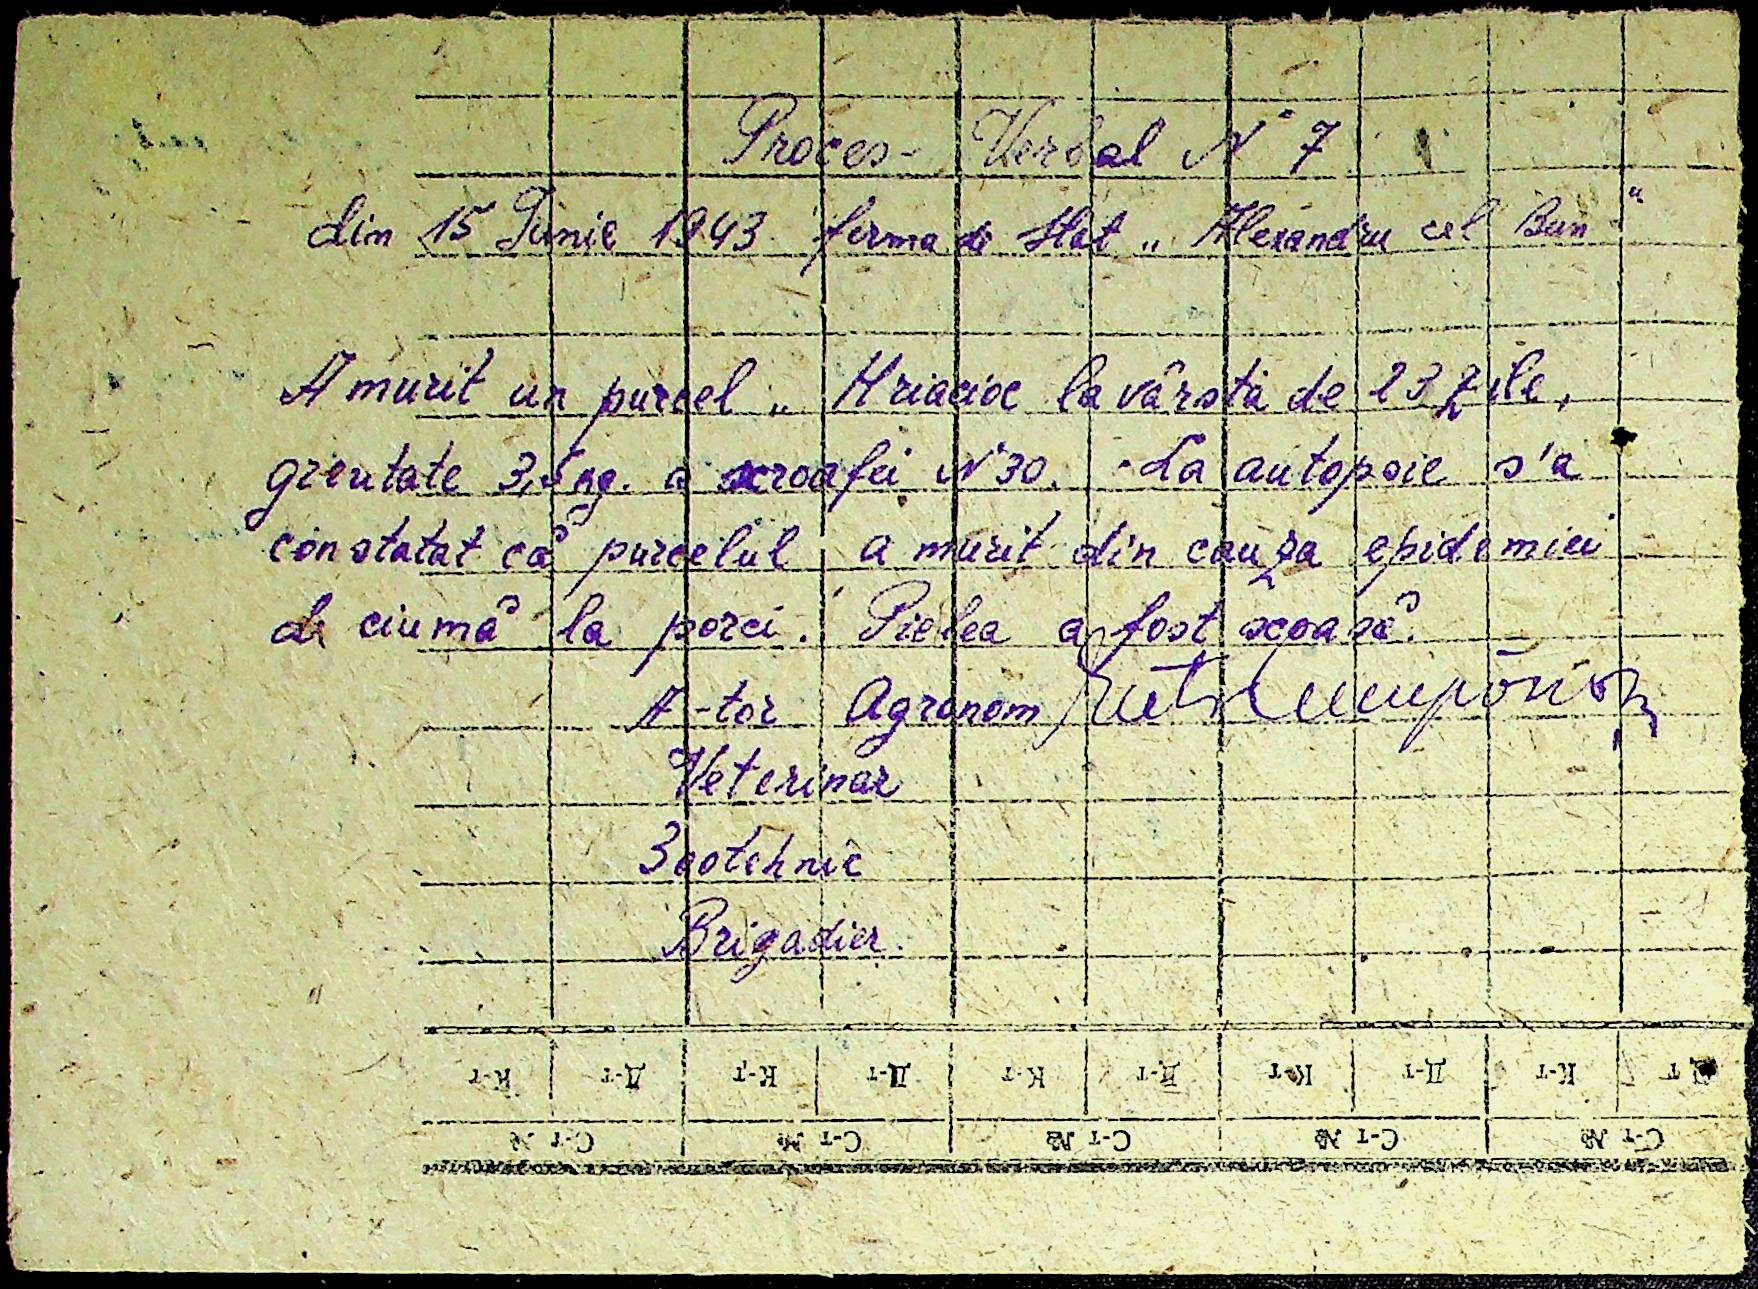 Proces-Verbal N° 7
din 15 Iunie 1943 ferma de Stat „Alexandru cel Bun“
A murit un purcel „ Hriacioc la vârsta de 23 zile,
greutate 3,5 kg. a scroafei N°30. La autopsie s'a
constatat că purcelul a murit din cauza epidemiei
de ciumă la porci. Pielea a fost scoasă.
A-tor Agronom
Veterinar
Zootehnic
Brigadier.
К-т Д-т К-т Д-т К-т Д-т К-т Д-т К-т Д-т
С-т № С-т № С-т № С-т № С-т №